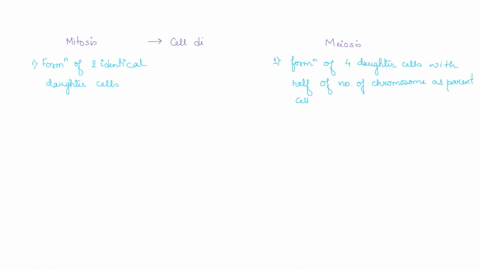 Mitosis → Cell di
Meiosis
1) Formⁿ of 2 identical
daughter cells
1) formⁿ of 4 daughter cells with
half of no. of chromosome as parent
cell